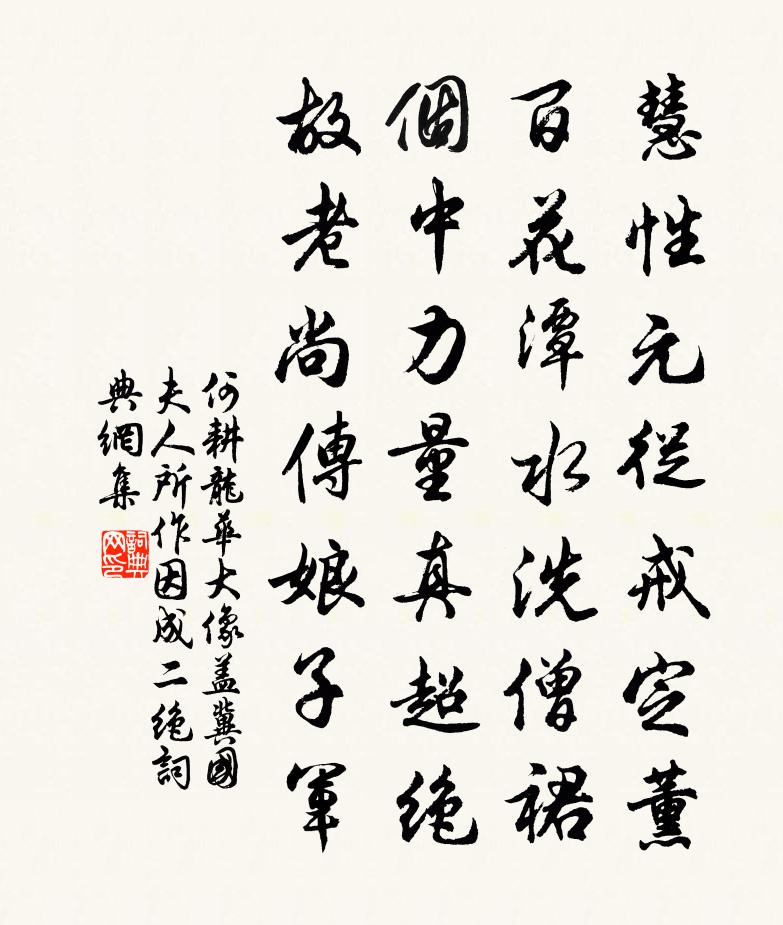 慧性元從戒定薰
百花潭水洗僧裙
個中力量真超絕
故老尚傳娘子軍
何耕龍華大像蓋冀國
夫人所作因成二絕詞
典網集
詞典
网印